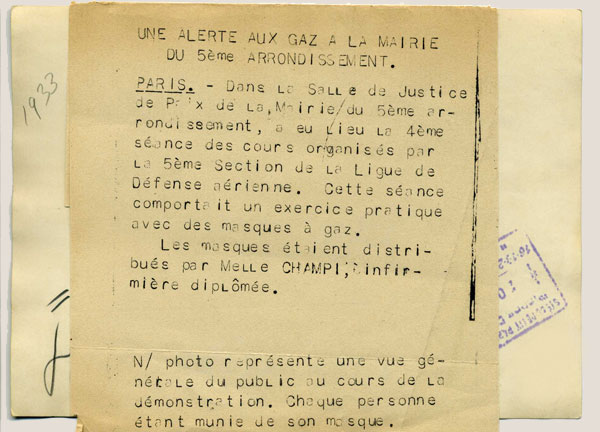 UNE ALERTE AUX GAZ A LA MAIRIE
DU 5ème ARRONDISSEMENT.
PARIS. - Dans la Salle de Justice
de Paix de la Mairie du 5ème ar-
rondissement, a eu lieu la 4ème
séance des cours organisés par
la 5ème Section de la Ligue de
Défense aérienne. Cette séance
comportait un exercice pratique
avec des masques à gaz.
Les masques étaient distri-
bués par Melle CHAMPI, infir-
mière diplômée.
N/ photo représente une vue gé-
nérale du public au cours de la
démonstration. Chaque personne
étant munie de son masque.
1933